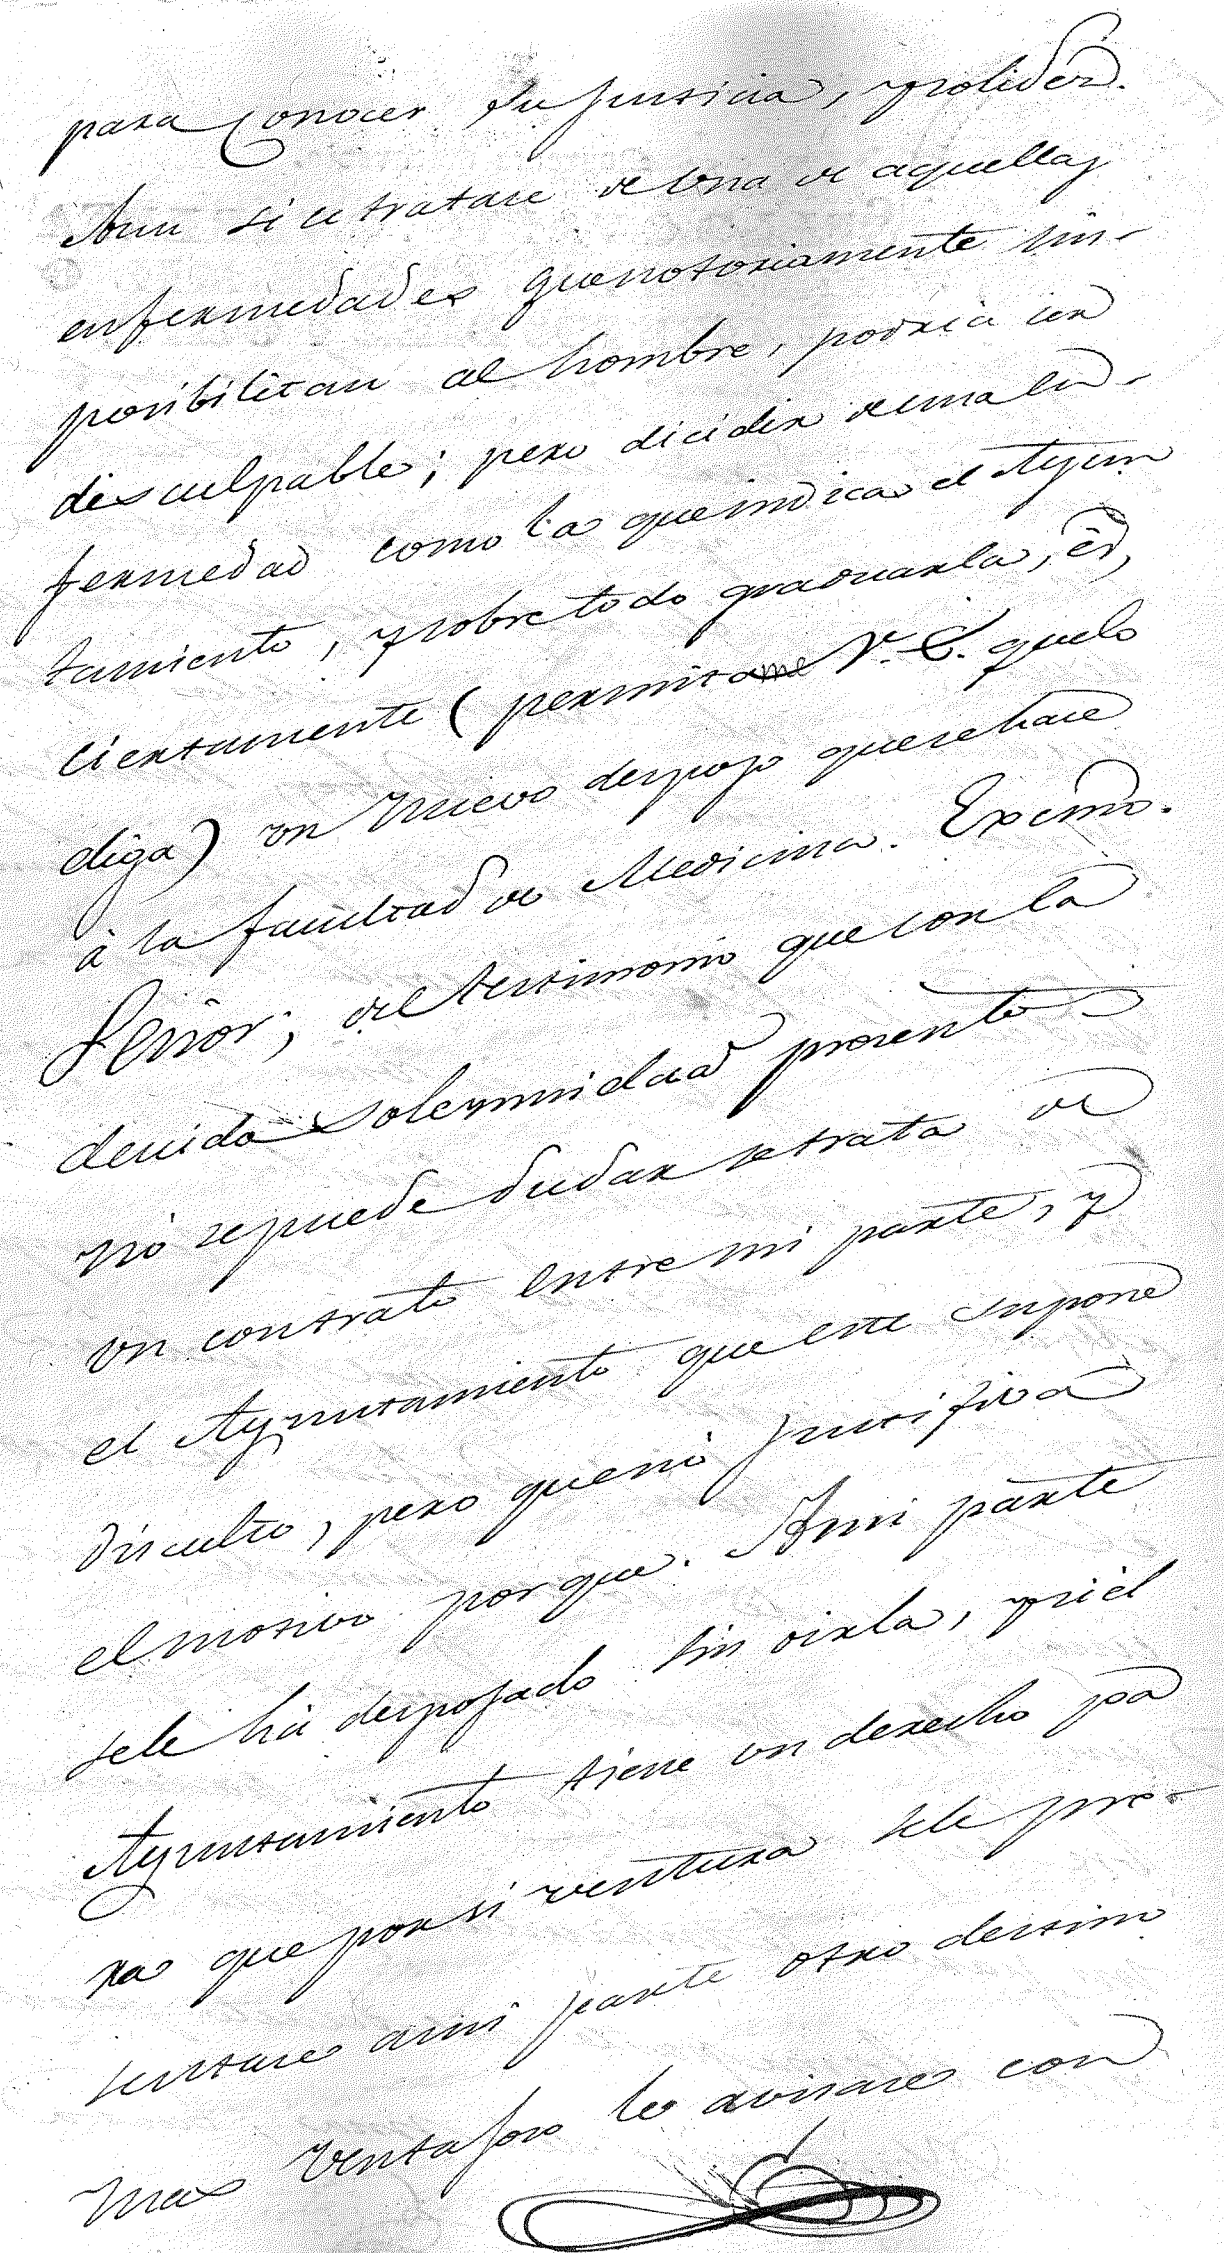 para conocer su justicia, y solidez.
Aun si se tratase de una de aquellas
enfermedades que notoriamente im-
posibilitan al hombre, podria ser
disculpable; pero dicidir de una en-
fermedad como la que indica el Ayun
tamiento, y sobre todo graduarla, és,
ciertamente (permitame V. E. que lo
diga) un nuevo despojo que se hace
à la facultad de Medicina. Excmo.
Señor; del testimonio que con la
devida solemnidad presento
nó se puede dudar se trata de
un contrato entre mi parte, y
el Ayuntamiento que este supone
disuelto, pero que nó justifica
el motivo por que. A mi parte
se le há despojado sin oirla, y si el
Ayuntamiento tiene un derecho pa
ra que por si ventura se le pre-
sentase a mi parte otro destino
mas ventajoso le avisase con